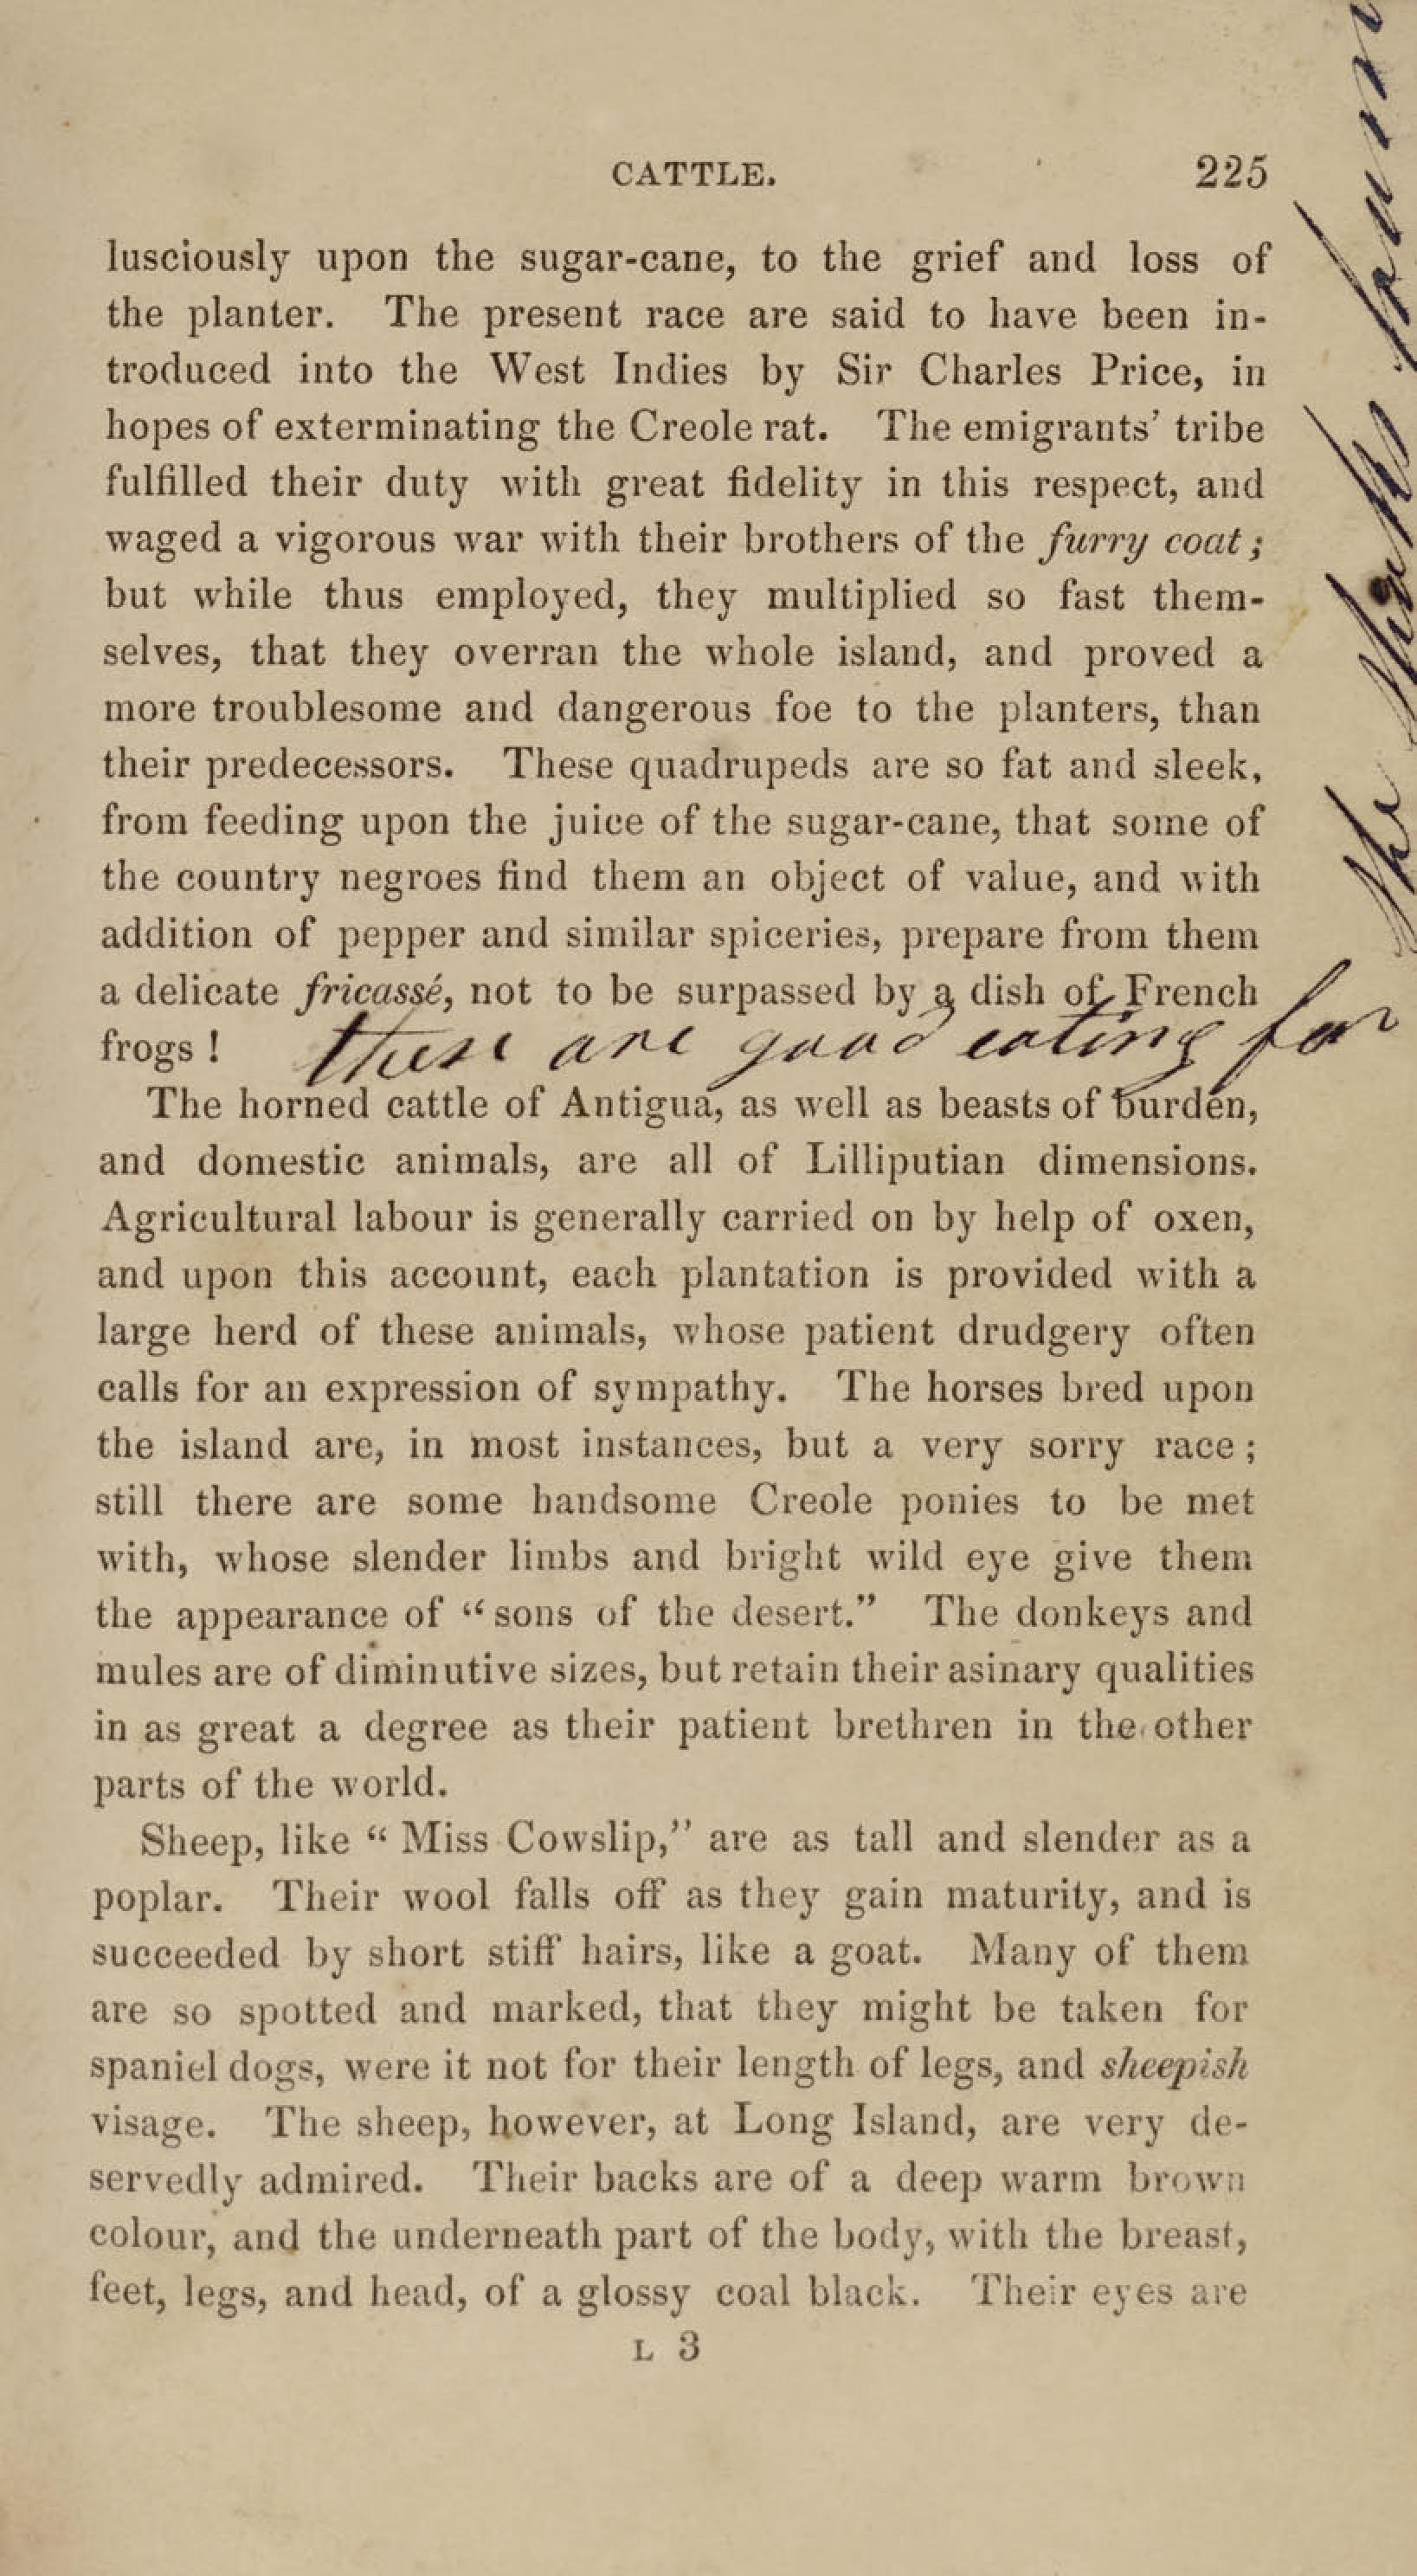 CATTLE. 225
lusciously upon the sugar-cane, to the grief and loss of
the planter. The present race are said to have been in-
troduced into the West Indies by Sir Charles Price, in
hopes of exterminating the Creole rat. The emigrants' tribe
fulfilled their duty with great fidelity in this respect, and
waged a vigorous war with their brothers of the furry coat;
but while thus employed, they multiplied so fast them-
selves, that they overran the whole island, and proved a
more troublesome and dangerous foe to the planters, than
their predecessors. These quadrupeds are so fat and sleek,
from feeding upon the juice of the sugar-cane, that some of
the country negroes find them an object of value, and with
addition of pepper and similar spiceries, prepare from them
a delicate fricassé, not to be surpassed by a dish of French
frogs !
these are good eating for
the
The horned cattle of Antigua, as well as beasts of burden,
and domestic animals, are all of Lilliputian dimensions.
Agricultural labour is generally carried on by help of oxen,
and upon this account, each plantation is provided with a
large herd of these animals, whose patient drudgery often
calls for an expression of sympathy. The horses bred upon
the island are, in most instances, but a very sorry race ;
still there are some handsome Creole ponies to be met
with, whose slender limbs and bright wild eye give them
the appearance of “sons of the desert.” The donkeys and
mules are of diminutive sizes, but retain their asinary qualities
in as great a degree as their patient brethren in the other
parts of the world.
Sheep, like “ Miss Cowslip,” are as tall and slender as a
poplar. Their wool falls off as they gain maturity, and is
succeeded by short stiff hairs, like a goat. Many of them
are so spotted and marked, that they might be taken for
spaniel dogs, were it not for their length of legs, and sheepish
visage. The sheep, however, at Long Island, are very de-
servedly admired. Their backs are of a deep warm brown
colour, and the underneath part of the body, with the breast,
feet, legs, and head, of a glossy coal black. Their eyes are
L 3